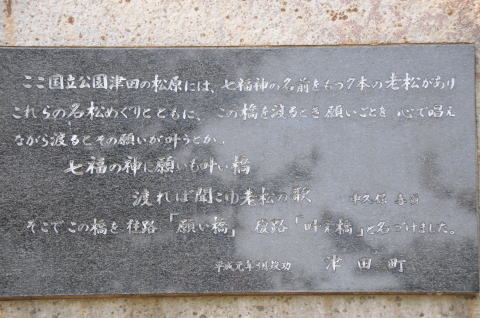 ここ国立公園津田の松原には、七福神の名前をもつ7本の老松があり
これらの名松めぐりとともに、この橋を渡るとき願いごとを心で唱え
ながら渡るとその願いが叶うとか。
七福の神に願いも叶い橋
渡れば聞こゆ老松の歌
そこでこの橋を往路「願い橋」 復路「叶え橋」と名づけました。
平成元年 竣功 津田町